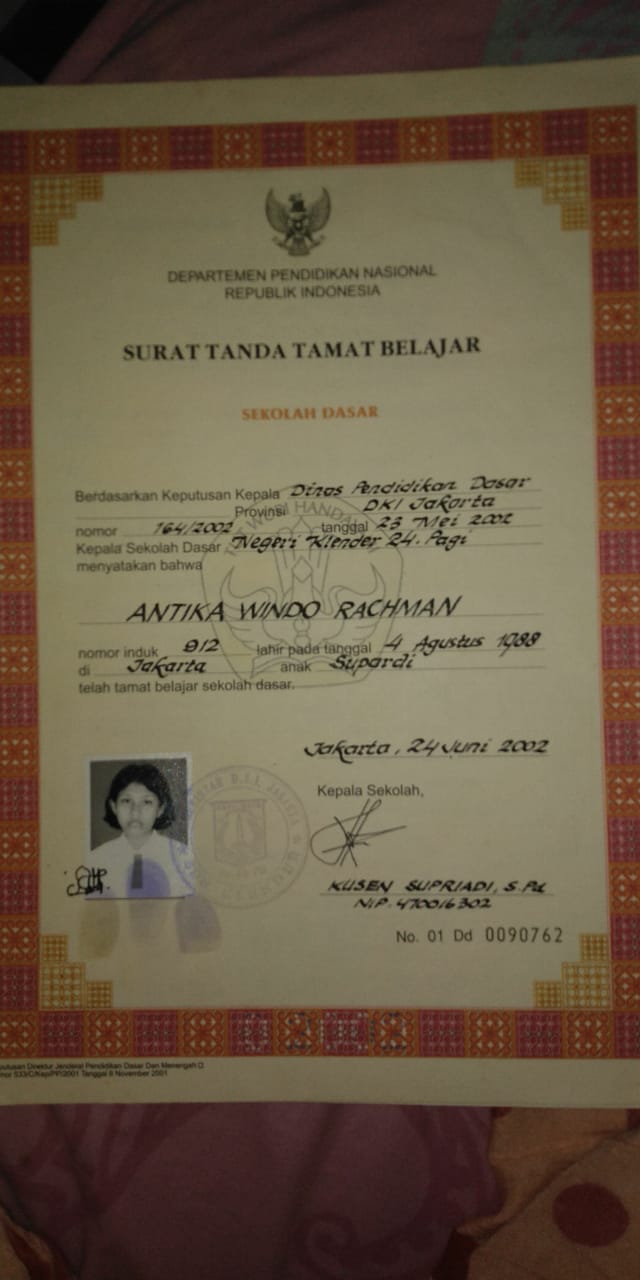 DEPARTEMEN PENDIDIKAN NASIONAL
REPUBLIK INDONESIA
SURAT TANDA TAMAT BELAJAR
SEKOLAH DASAR
Berdasarkan Keputusan Kepala Dinas Pendidikan Dasar
Provinsi DKI Jakarta
nomor 164/2002 tanggal 23 Mei 2002
Kepala Sekolah Dasar Negeri Klender 24. Pagi
menyatakan bahwa
ANTIKA WINDO RACHMAN
nomor induk 912 lahir pada tanggal 4 Agustus 1988
di Jakarta anak Supardi
telah tamat belajar sekolah dasar.
Jakarta, 24 Juni 2002
Kepala Sekolah,
KUSEN SUPRIADI, S.Pd
NIP. 470016302
No. 01 Dd 0090762
Direktur Jenderal Pendidikan Dasar Dan Menengah
533/C/Kep/PP/2001 Tanggal 8 November 2001